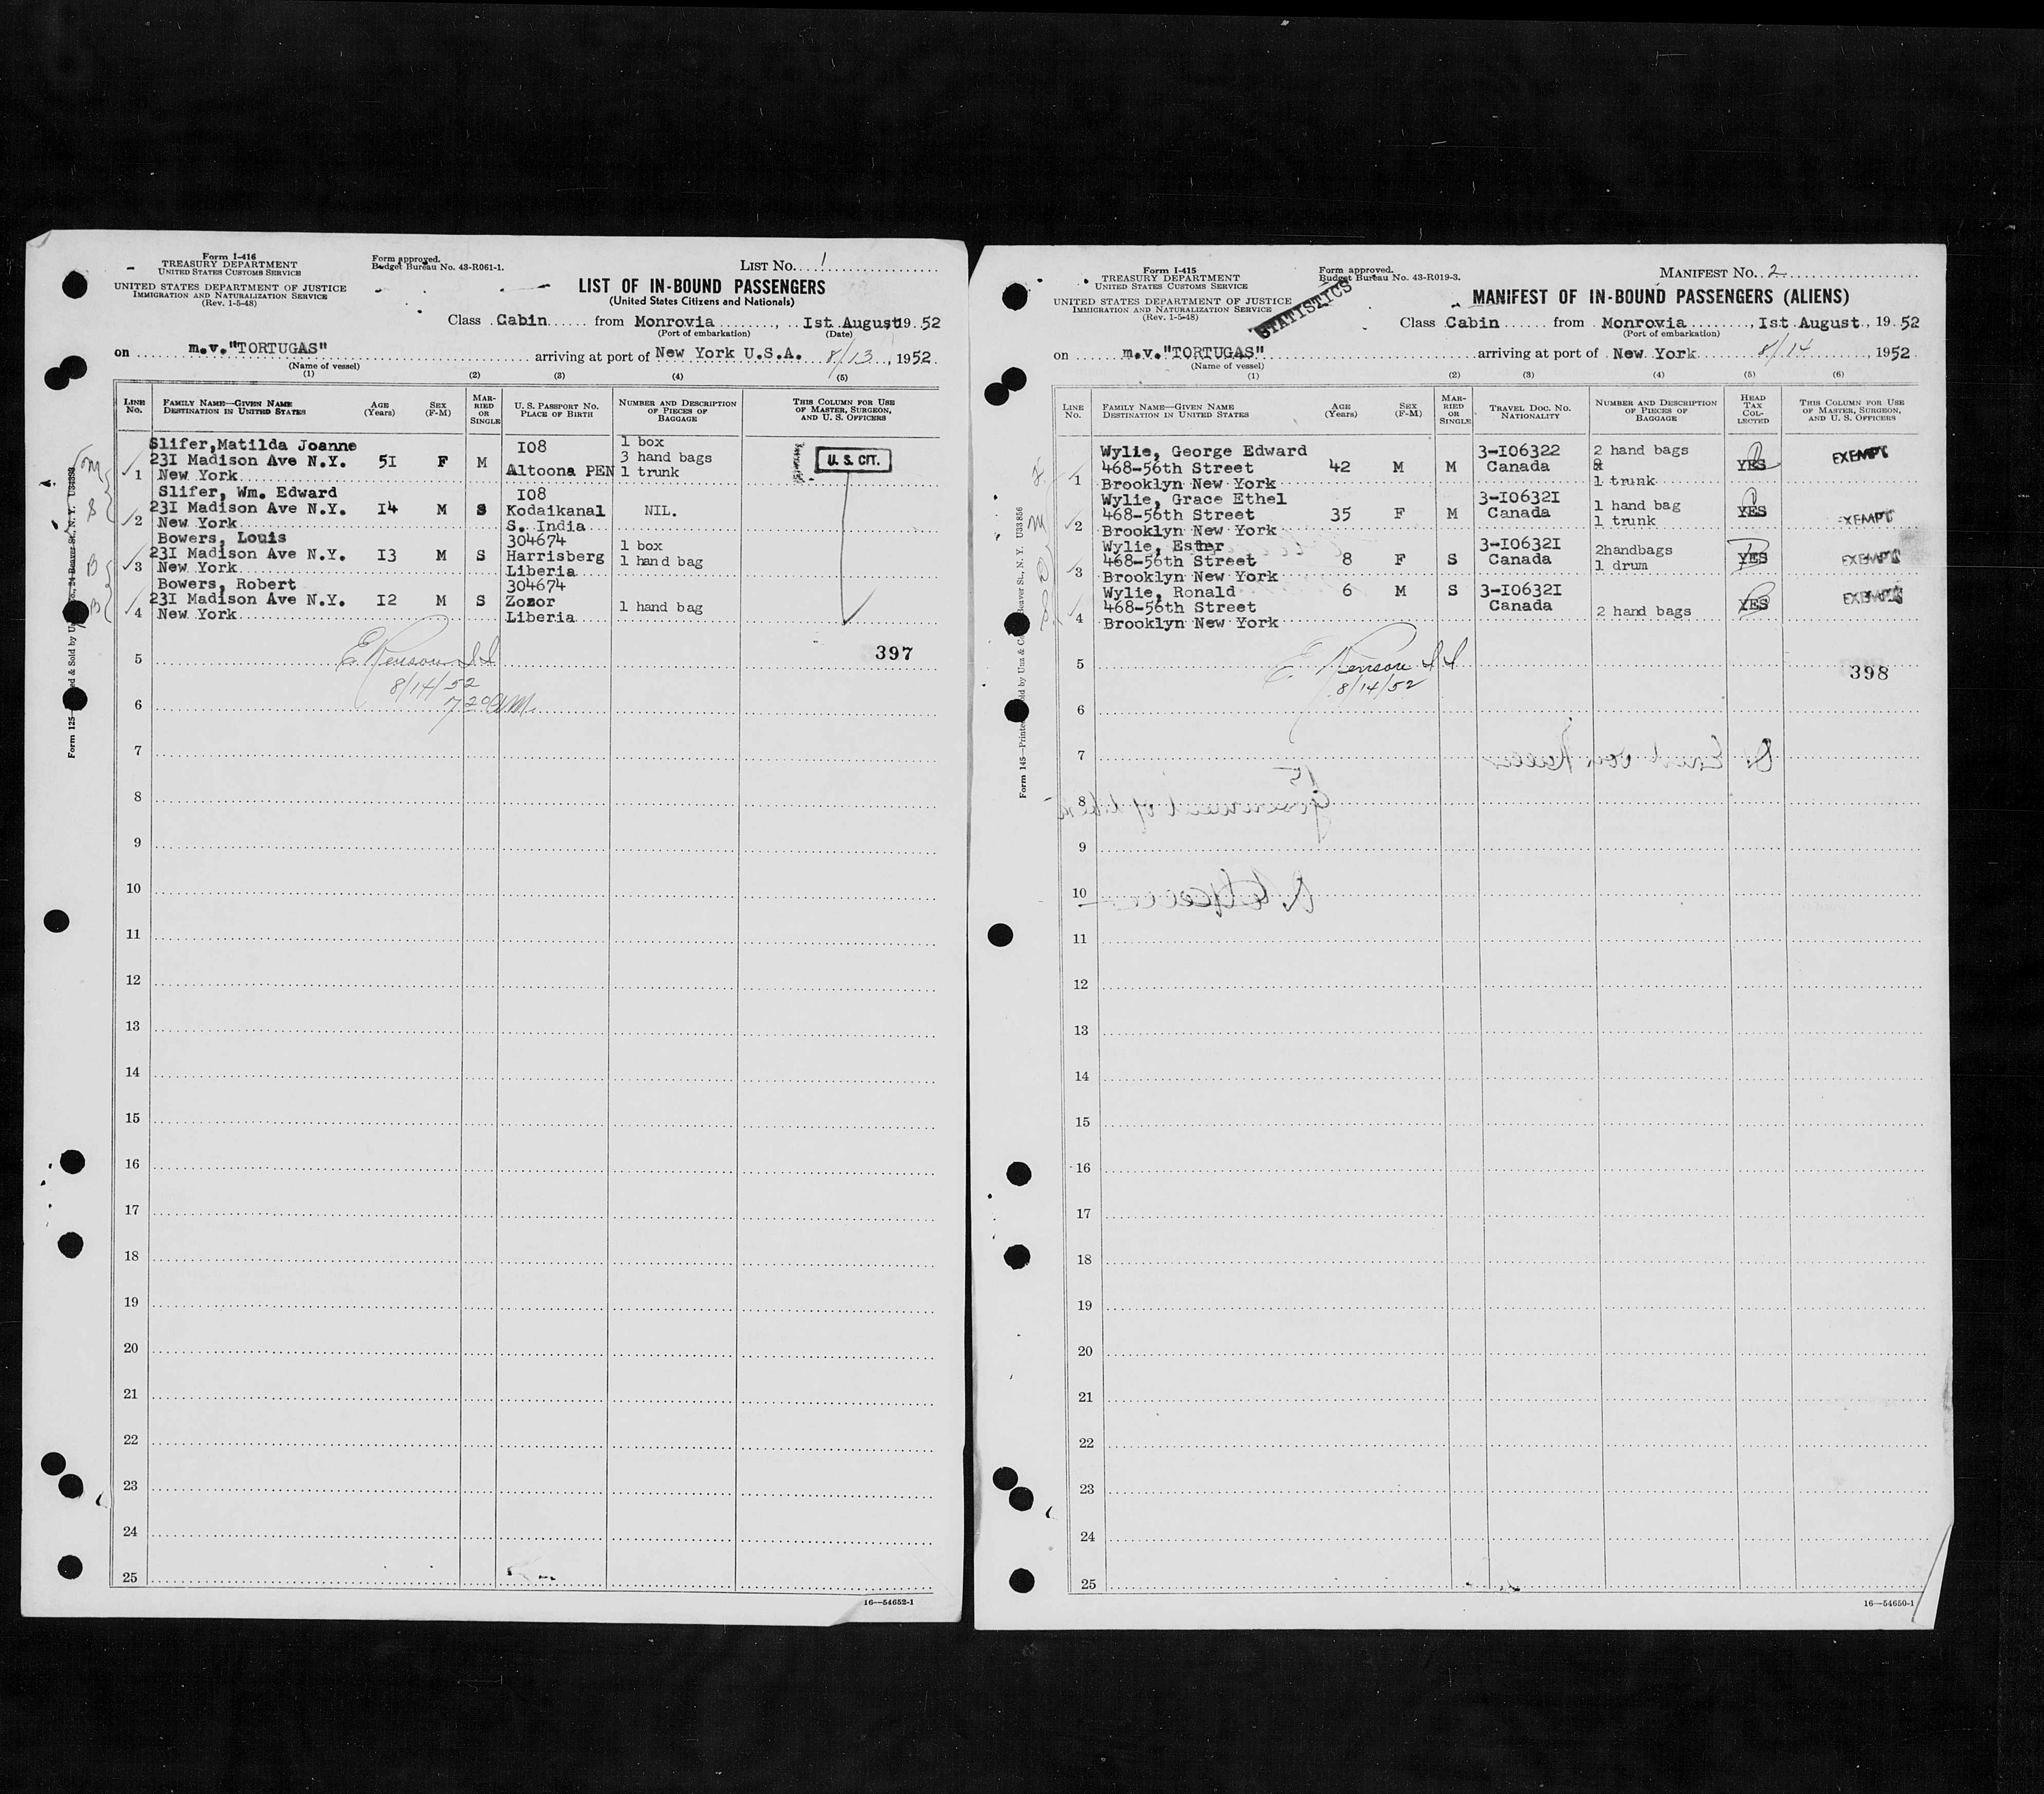 Form I-416
TREASURY DEPARTMENT
UNITED STATES CUSTOMS SERVICE
UNITED STATES DEPARTMENT OF JUSTICE
IMMIGRATION AND NATURALIZATION SERVICE
(Rev. 1-5-48)
Form approved.
Budget Bureau No. 43-R061-1.
LIST NO. 1
LIST OF IN-BOUND PASSENGERS
(United States Citizens and Nationals)
Class Cabin from Monrovia, Ist August 19 52
(Port of embarkation) (Date)
on m.v."TORTUGAS" arriving at port of New York U.S.A. 8/13, 1952
(Name of vessel)
(1) (2) (3) (4) (5)
LINE NO. FAMILY NAME—GIVEN NAME DESTINATION IN UNITED STATES AGE (Years) SEX (F-M) MARRIED OR SINGLE U. S. PASSPORT NO. PLACE OF BIRTH NUMBER AND DESCRIPTION OF PIECES OF BAGGAGE THIS COLUMN FOR USE OF MASTER, SURGEON, AND U. S. OFFICERS
Slifer,Matilda Joanne I08 1 box
23I Madison Ave N.Y. 5I F M 3 hand bags U. S. CIT.
1 New York Altoona PEN 1 trunk
Slifer, Wm. Edward I08
23I Madison Ave N.Y. I4 M S Kodaikanal NIL.
2 New York S. India
Bowers, Louis 304674 1 box
23I Madison Ave N.Y. I3 M S Harrisberg 1 hand bag
3 New York Liberia
Bowers, Robert 304674
23I Madison Ave N.Y. I2 M S Zozor 1 hand bag
4 New York Liberia
5 397
8/14/52
6 720 AM.
7
8
9
10
11
12
13
14
15
16
17
18
19
20
21
22
23
24
25
16—54652-1
Form I-415
TREASURY DEPARTMENT
UNITED STATES CUSTOMS SERVICE
UNITED STATES DEPARTMENT OF JUSTICE
IMMIGRATION AND NATURALIZATION SERVICE
(Rev. 1-5-48)
Form approved.
Budget Bureau No. 43-R019-3.
STATISTICS
MANIFEST NO. 2
MANIFEST OF IN-BOUND PASSENGERS (ALIENS)
Class Cabin from Monrovia, Ist August, 19 52
(Port of embarkation)
on m.v."TORTUGAS" arriving at port of New York 8/14, 1952
(Name of vessel)
(1) (2) (3) (4) (5) (6)
LINE NO. FAMILY NAME—GIVEN NAME DESTINATION IN UNITED STATES AGE (Years) SEX (F-M) MARRIED OR SINGLE TRAVEL DOC. NO. NATIONALITY NUMBER AND DESCRIPTION OF PIECES OF BAGGAGE HEAD TAX COLLECTED THIS COLUMN FOR USE OF MASTER, SURGEON, AND U. S. OFFICERS
Wylie, George Edward 3-I06322 2 hand bags EXEMPT
468-56th Street 42 M M Canada & YES
1 Brooklyn New York 1 trunk
Wylie, Grace Ethel 3-I0632I 1 hand bag
468-56th Street 35 F M Canada 1 trunk YES EXEMPT
2 Brooklyn New York
Wylie, Esther 3-I0632I 2handbags
468-56th Street 8 F S Canada 1 drum YES EXEMPT
3 Brooklyn New York
Wylie, Ronald 6 M S 3-I0632I
468-56th Street Canada 2 hand bags YES EXEMPT
4 Brooklyn New York
5 398
8/14/52
6
7
8
9
10
11
12
13
14
15
16
17
18
19
20
21
22
23
24
25
16—54650-1